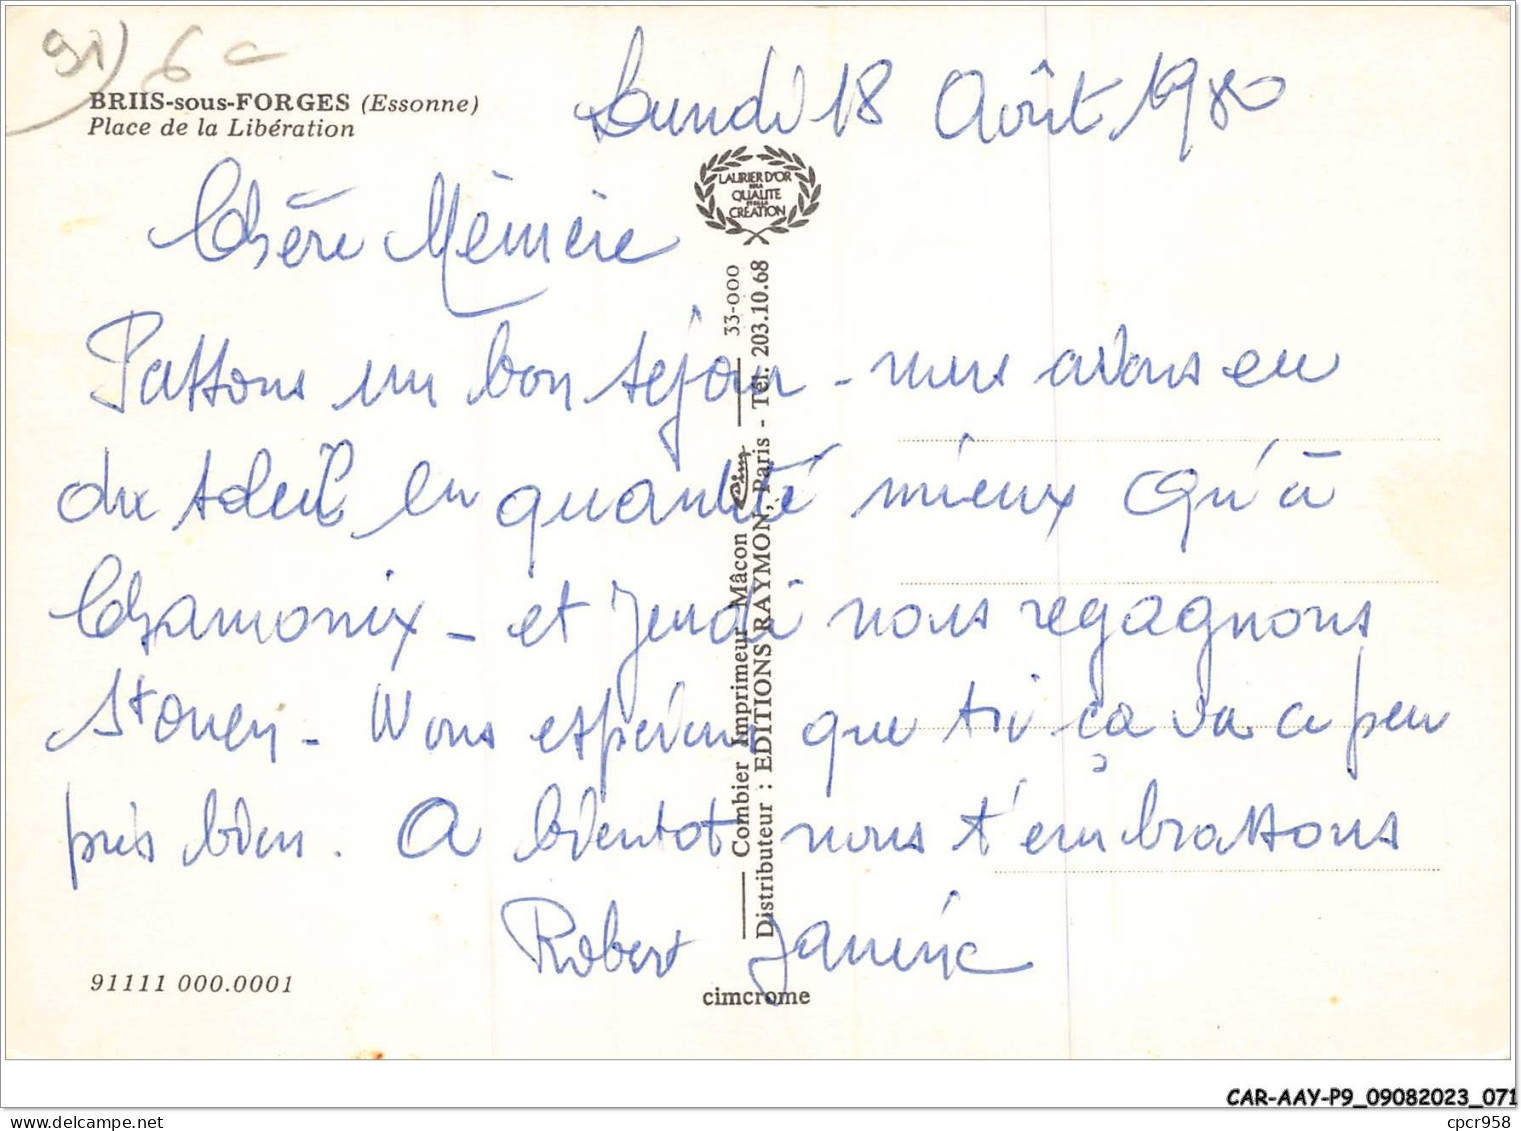 91) 6
BRIIS-sous-FORGES (Essonne)
Place de la Libération
Lundi 18 Août 1980
LAURIER D'OR
DE LA
QUALITE
ET DE LA
CRÉATION
Chère Mémère
Passons un bon séjour - nous avons eu
du soleil en quantité mieux qu'à
Chamonix - et Jeudi nous regagnons
St ouen - Nous espérons que toi ça va a peu
près bien. A bientot nous t'embrassons
Robert Janine
Combier Imprimeur Mâcon Cim 33-000
Distributeur : EDITIONS RAYMON, Paris - Tél. 203.10.68
91111 000.0001
cimcrome
CAR-AAY-P9_09082023_071
delcampe.net
cpcr958